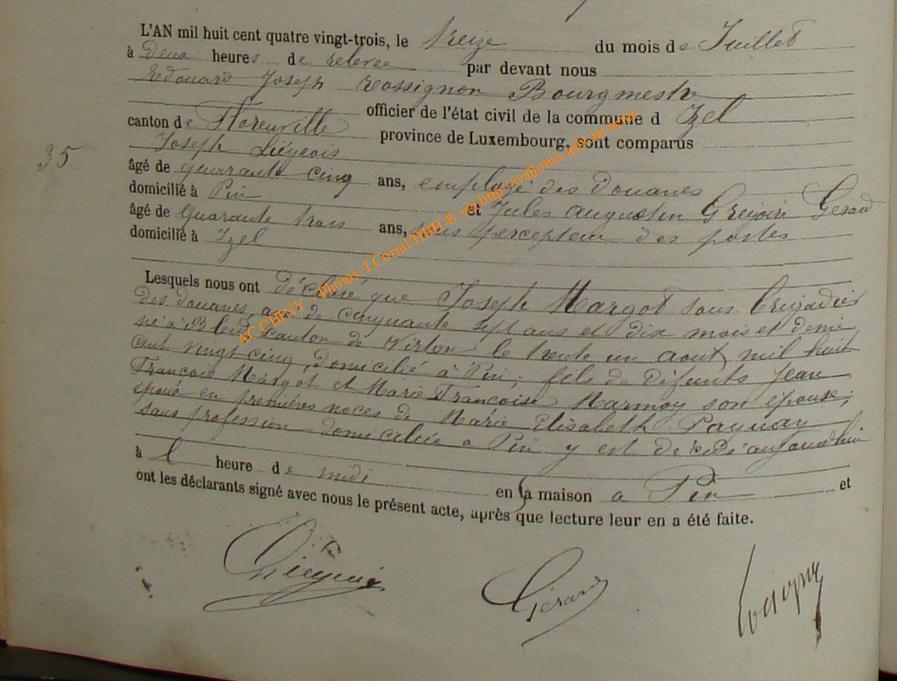 L'AN mil huit cent quatre vingt-trois, le treize du mois de Juillet
à deux heures de relevée par devant nous
Edouard Joseph Rossignon Bourgmestre
officier de l'état civil de la commune d Izel
canton de Florenville province de Luxembourg, sont comparus
35
Joseph Liégeois
âgé de quarante cinq ans, employé des Douanes
domicilié à Pin et Jules Augustin Grégoire Gérard
âgé de Quarante trois ans, sous percepteur des postes
domicilié à Izel
Lesquels nous ont déclaré que Joseph Margot sous brigadier
des douanes, âgé de cinquante sept ans et dix mois et demi,
né à Bleid, canton de Virton le trente un août mil huit
cent vingt cinq, domicilié à Pin; fils de défunts Jean
François Margot et Marie Françoise Marmoy son épouse;
époux en premières noces de Marie Elisabeth Paquay
sans profession domiciliée à Pin y est décédé aujourd'hui
à l heure de midi en sa maison a Pin et
ont les déclarants signé avec nous le présent acte, après que lecture leur en a été faite.
Liégeois Gérard Rossignon
AC CHINY - Photos J Cornil/HBH @ via